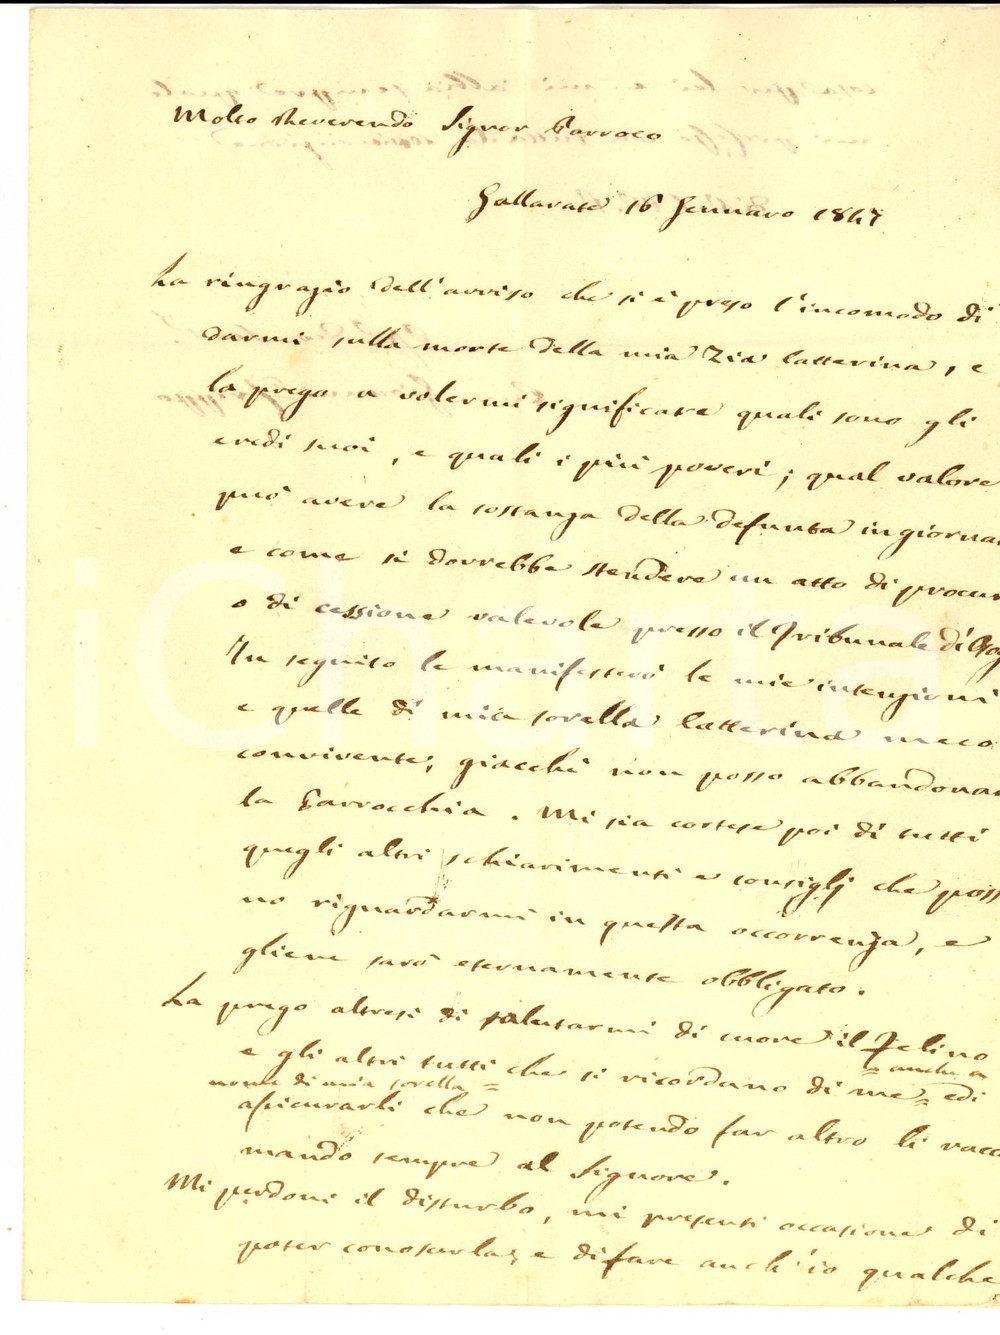 Molto Reverendo Signor Parroco
Gallarate 16 Gennaro 1847
La ringrazio dell'avviso che si è preso l'incomodo di
darmi sulla morte della mia Zia Catterina, e
la prego a volermi significare quali sono gli
eredi suoi, e quali i più poveri; qual valore
può avere la sostanza della defunta in giorna
e come si dovrebbe stendere un atto di procur
o di cessione valevole presso il Tribunale di
In seguito le manifesterò le mie intenzioni
e quelle di mia sorella Catterina meco
convivente; giacchè non posso abbandonar
la Parrocchia. Mi sia cortese poi di tutti
quegli altri schiarimenti e consiglj che poss
no riguardarmi in questa occorrenza, e
gliene sarò eternamente obbligato.
La prego altresì di salutarmi di cuore il Felino
e gli altri tutti che si ricordano di me = edi
= anche a
nome di mia sorella =
assicurarli che non potendo far altro li racco
mando sempre al Signore.
Mi perdoni il disturbo, mi presenti occasione di
poter conoscerla, e di fare anch'io qualche
iCharta